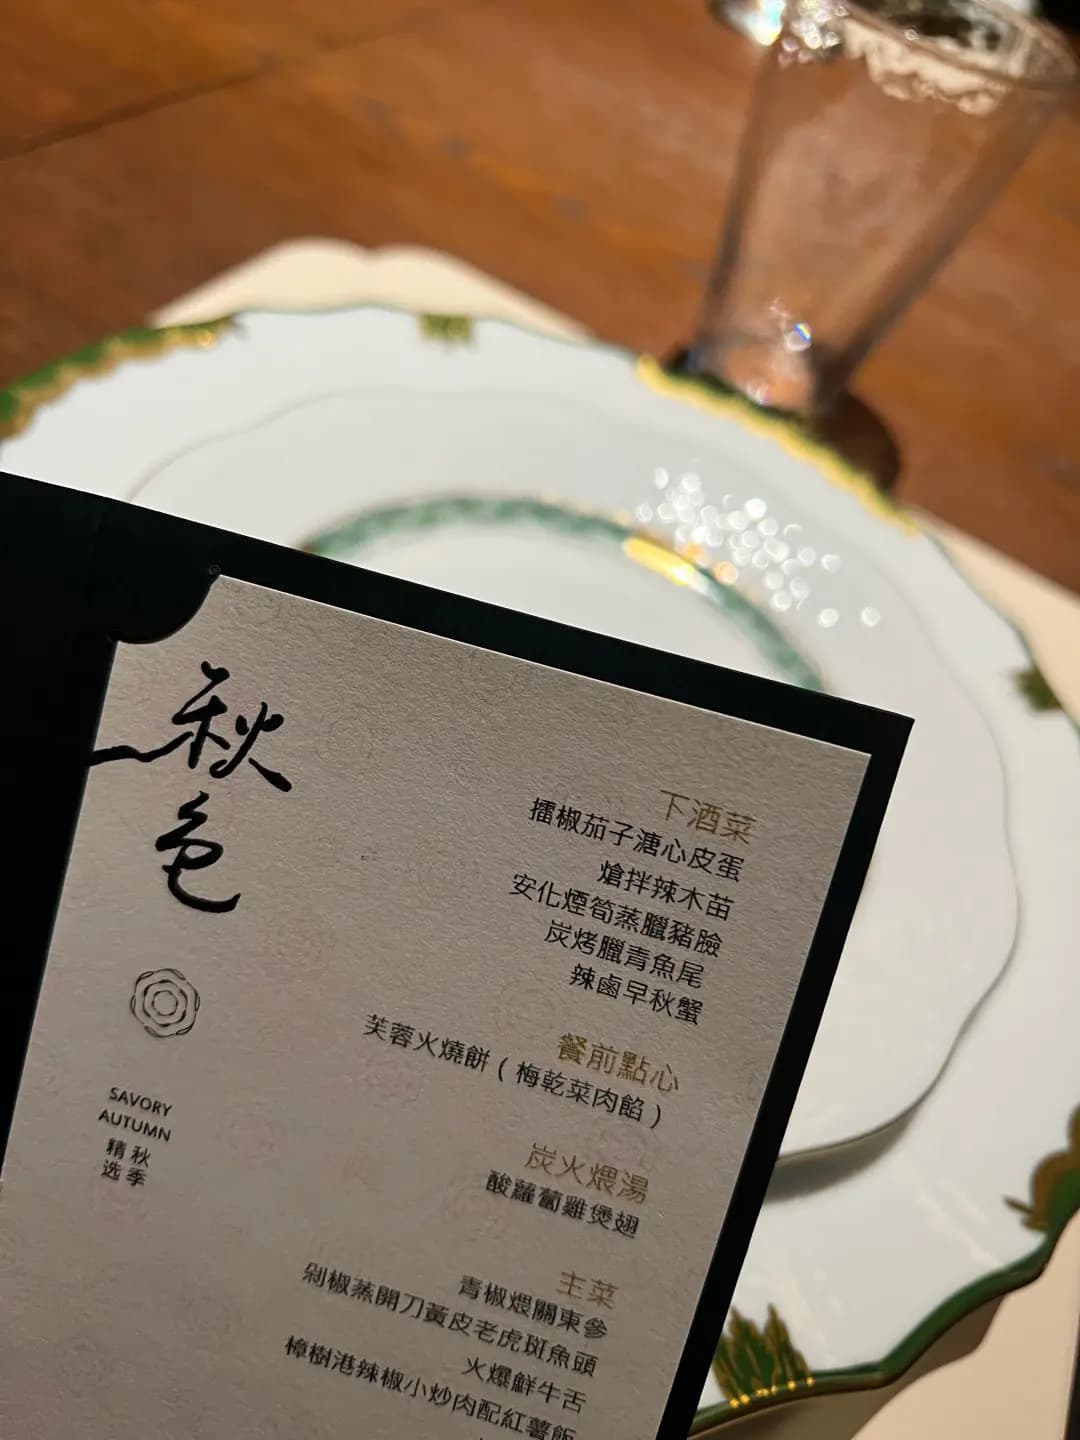 秋色
SAVORY
AUTUMN
秋季
精选
下酒菜
擂椒茄子溏心皮蛋
熗拌辣木苗
安化煙筍蒸臘豬臉
炭烤臘青魚尾
辣鹵早秋蟹
餐前點心
芙蓉火燒餅（梅乾菜肉餡）
炭火煨湯
酸蘿蔔雞煲翅
主菜
青椒煨關東參
剁椒蒸開刀黃皮老虎斑魚頭
火爆鮮牛舌
樟樹港辣椒小炒肉配紅薯飯